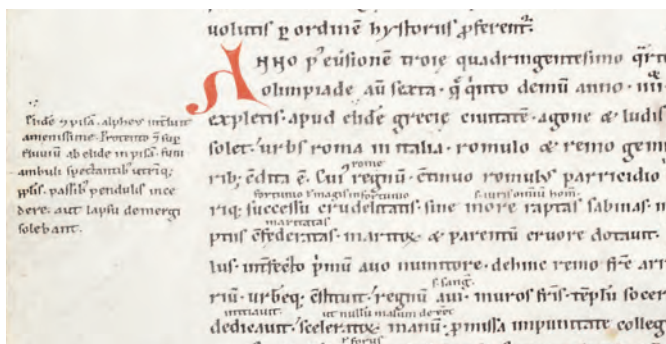 uolutis p ordinē hystoriis pferent᷑.
ANNO p᾽ euersionē troie quadringentesimo
olimpiade aū sexta · quinto demū anno · iiii
expletis · apud elidē grecie ciuitatē · agone & ludis
solet᷑ · urbs roma in italia · romulo & remo gemi
rome
rib; edita ē. Cui᾽ regnū · ctinuo romulus parricidio
fortunio ł magis infortunio
s. iuris omniū hom̄.
riq; successū crudelitatis · sine more raptas sabinas ·
maritatas
ptiis cfederatas · maritoꝝ & parentū cruore dotauit.
lus · intfecto pmū auo numitore · dehinc remo fr̄e
s. sang̅.
riū · urbeq; cstituit᷑ regnū aui · muros fr̄is · teplū socer
initiauit
ut nullū malum
dedicauit᷑ sceleratoꝝ manū · pmissa impunitate colleg
ł forus
Elidē pisā · alpheus interluit
amenissime. Protento fune sup
fluuiū ab elide in pisā · funi
ambuli spectantib᾽ utriq;
pplis · passib᾽ pendulis ince
dere · aut lapsu demergi
solebant.